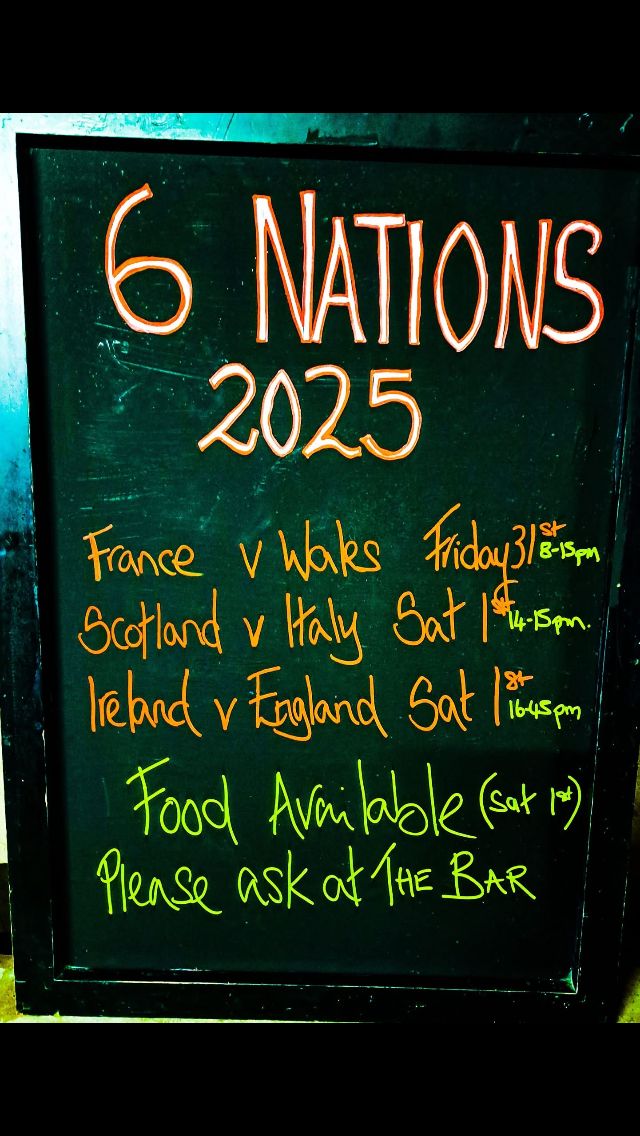 6 NATIONS
2025
France v Wales Friday 31st 8-15pm
Scotland v Italy Sat 1st 14-15pm.
Ireland v England Sat 1st 16-45pm
Food Available (Sat 1st)
Please ask at THE BAR